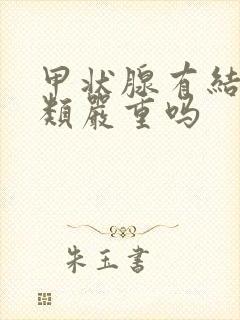 甲状腺有結
類嚴重吗
朱玉書